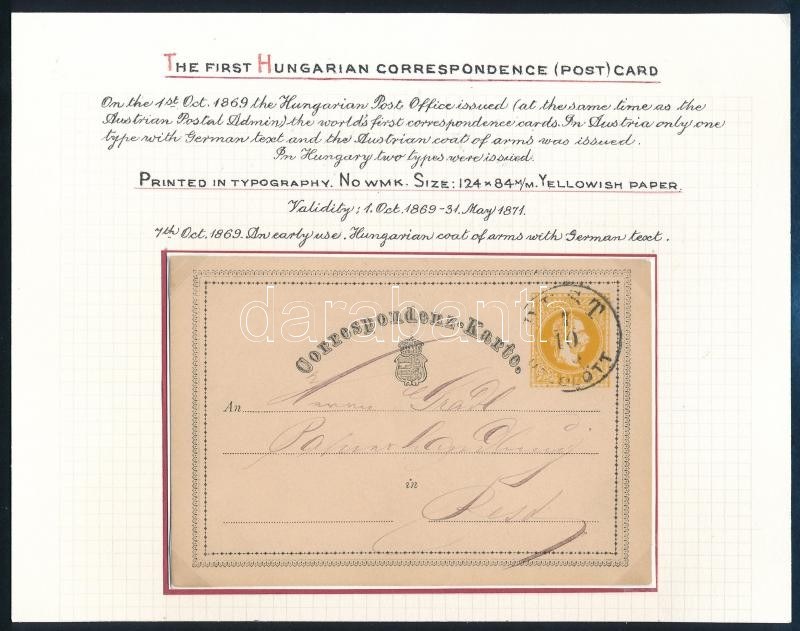 THE FIRST HUNGARIAN CORRESPONDENCE (POST) CARD
On the 1st Oct. 1869 the Hungarian Post Office issued (at the same time as the
Austrian Postal Admin) the world's first correspondence cards. In Austria only one
type with German text and the Austrian coat of arms was issued.
In Hungary two types were issued.
PRINTED IN TYPOGRAPHY. NO WMK. SIZE: 124 × 84 M/M. YELLOWISH PAPER.
Validity: 1. Oct. 1869 - 31. May 1871.
7th Oct. 1869. An early use. Hungarian coat of arms with German text.
darabanth
Correspondenz-Karte.
PEST
An
in
Pest